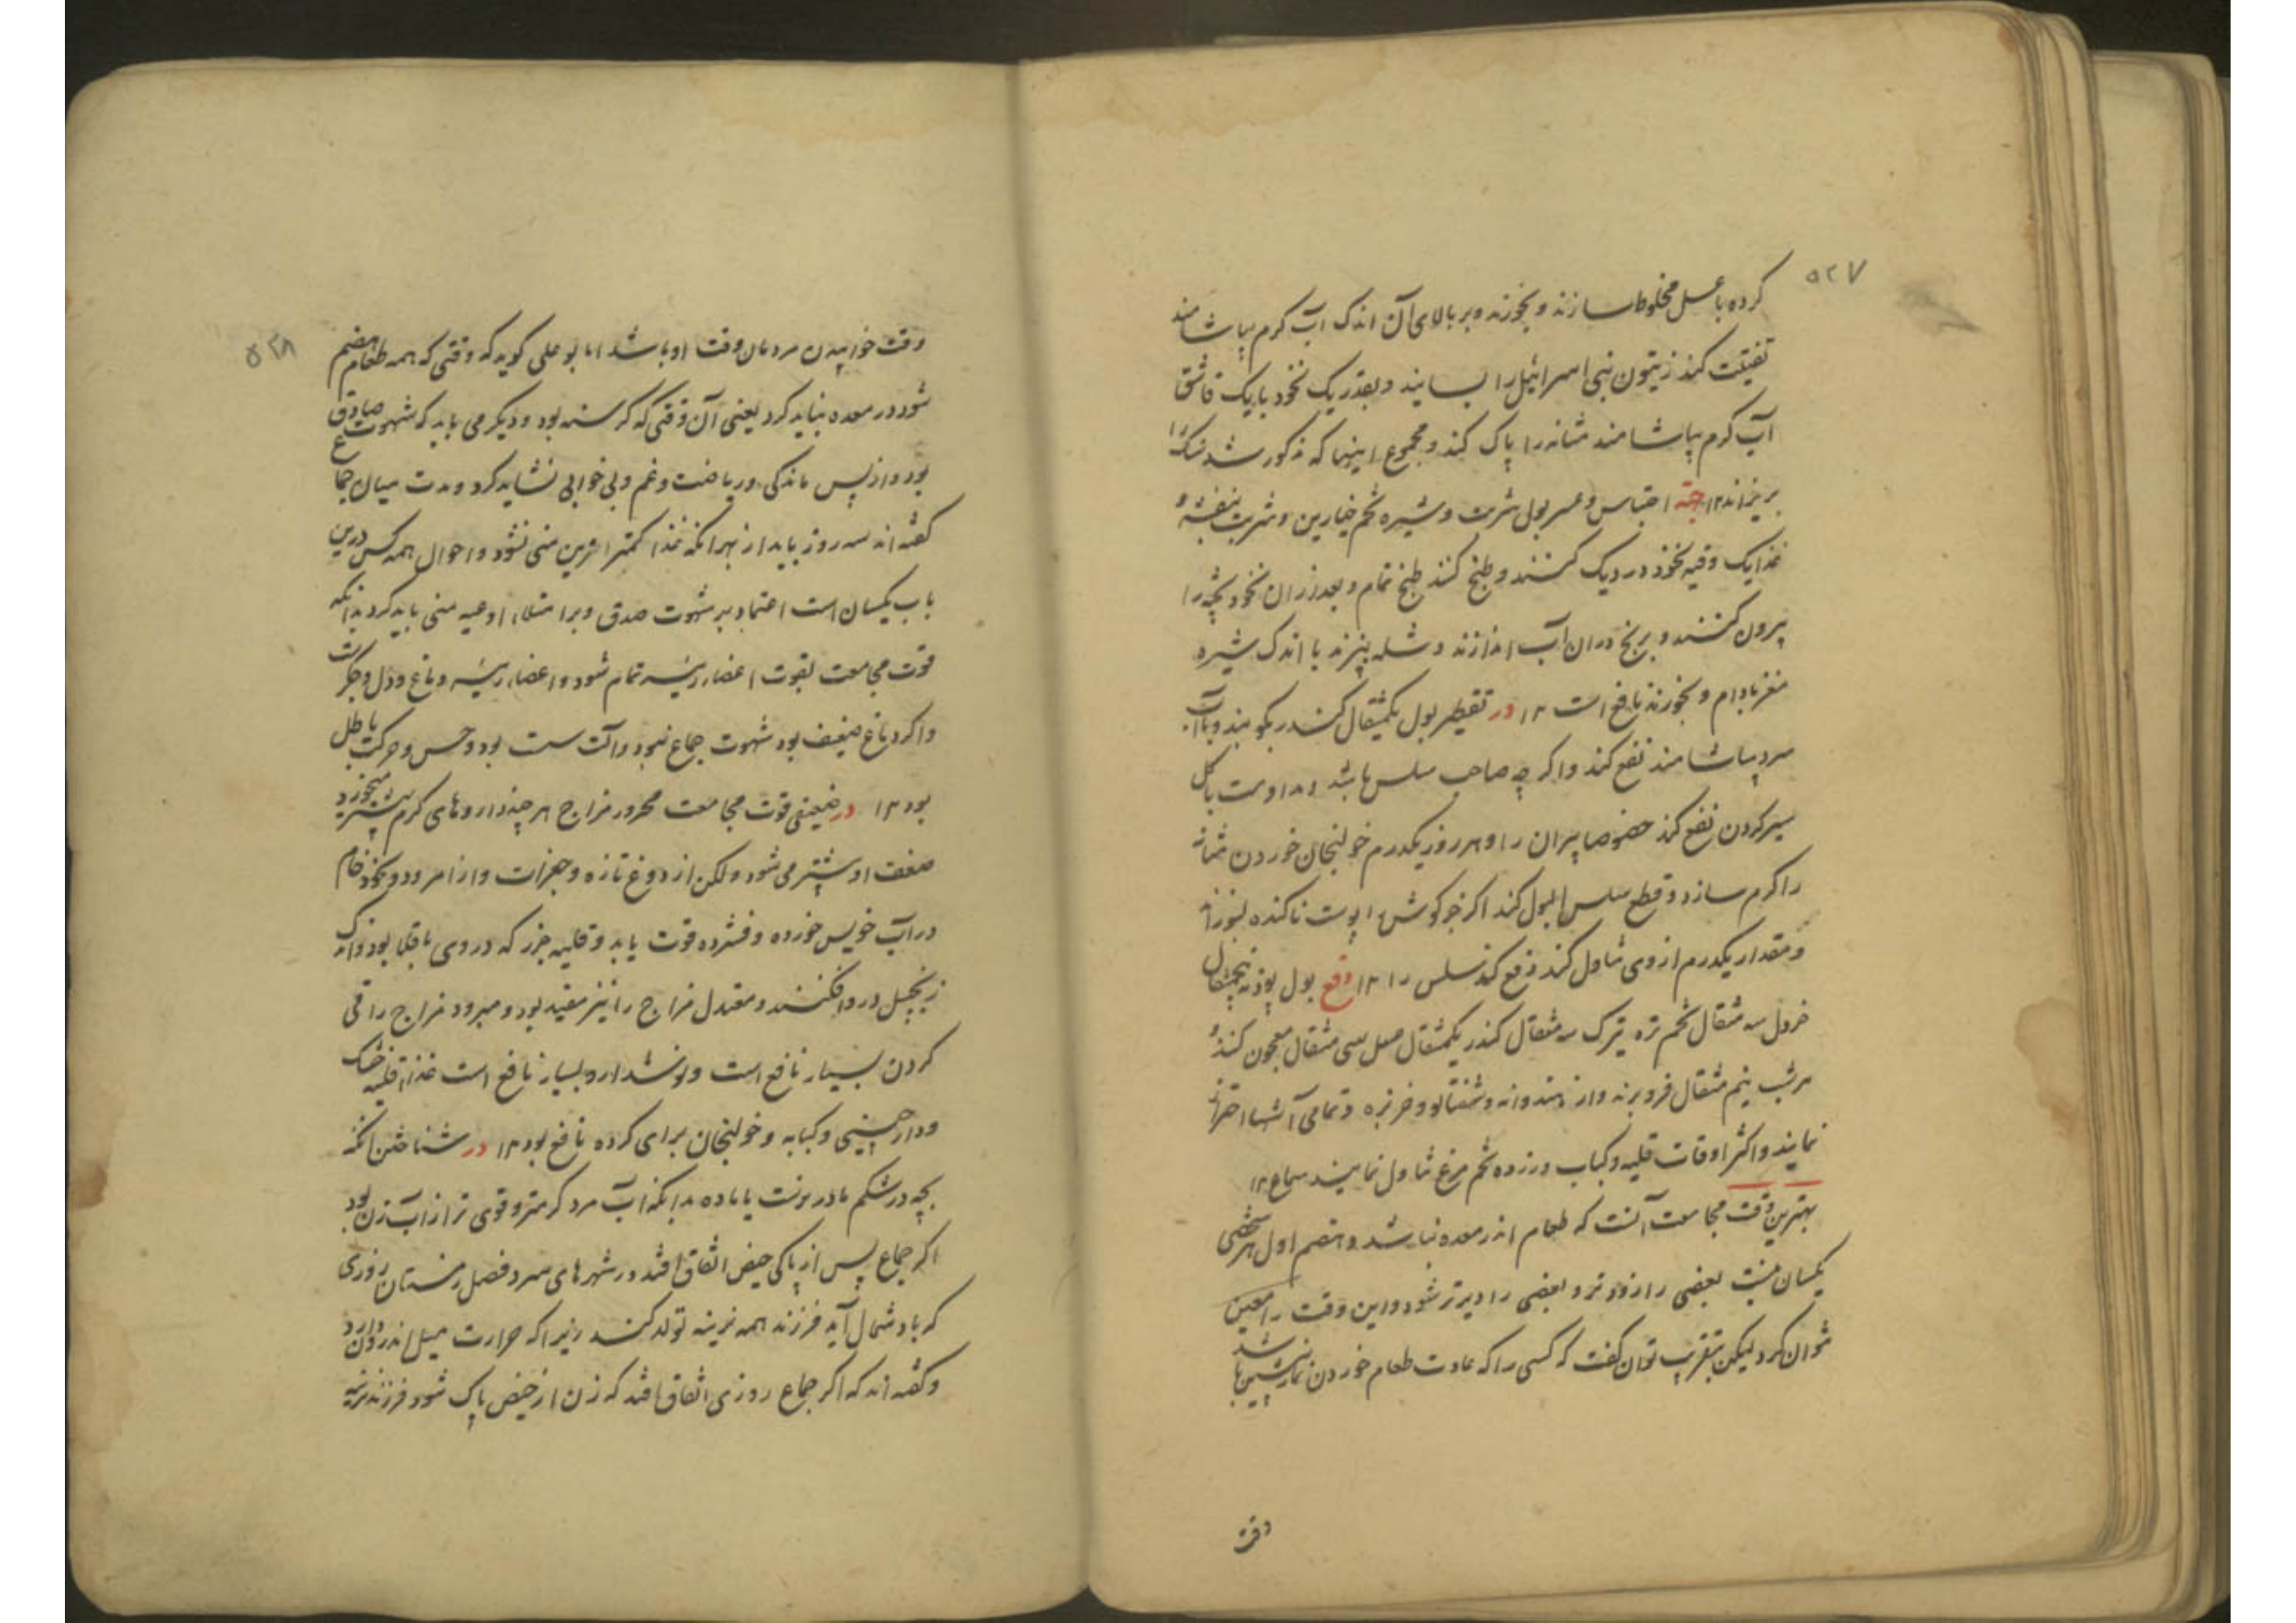 ۵۲۷
کرده با عسل مخلوط سازند و بخورند و بر بالای آن اندک آب کرم بیاشامند
تفتیت کند زیتون بنی اسرائیل را بسایند و بقدر یک نخود با یک قاشق
آب کرم بیاشامند مثانه را پاک کند و مجموع اینها که مذکور شد سنک را
بریزاند ۱۲ جهة احتباس و عسر بول شربت و شیره تخم خیارین و شربت بنفشه و
غذا یک وقیه نخود در دیک کنند و طبخ کنند طبخ تمام و بعد از ان نخود پخته را
بیرون کنند و برنج دران آب اندازند و شله بپزند با اندک شیره
مغز بادام و بخورند نافع است ۱۲ در تقطیر بول یکمثقال کندر بکوبند و بآب
سرد بیاشامند نفع کند و اکر چه صاحب سلس باشد و مداومت باکل
سیر کردن نفع کند خصوصا پیران را و هر روز یکدرم خولنجان خوردن مثانه
را کرم سازد و قطع سلس البول کند اکر خرکوش را پوست ناکنده بسوزند
و مقدار یکدرم از وی تناول کند دفع کند سلس را ۱۲ دفع بول پودنه پنجمثقال
خردل سه مثقال تخم تره تیزک سه مثقال کندر یکمثقال عسل سی مثقال معجون کنند و
هر شب نیم مثقال فرو برند و از هندوانه و شفتالو و خربزه و تمامی آشها احتراز
نمایند و اکثر اوقات قلیه و کباب و زرده تخم مرغ تناول نمایند سماع ۱۲
بهترین وقت مجامعت آنست که طعام اندر معده نباشد و هضم اول هر شخصی
یکسان نیست بعضی را زود تر و بعضی را دیر تر شود و این وقت را معین
نتوان کرد لیکن بتقریب توان کفت که کسی را که عادت طعام خوردن نماز پیشین باشد
وقت
۵۲۸
وقت خوابیدن مردمان وقت او باشد اما بو علی کوید که وقتی که همه طعام هضم
شود در معده نباید کرد یعنی آن وقتی که کرسنه بود و دیکر می باید که شهوت صادق
بود و از پس ماندکی و ریاضت و غم و بی خوابی نشاید کرد و مدت میان جماع
کفته اند سه روز باید از بهر انکه غذا کمتر ازین منی نشود و احوال همه کس درین
باب یکسان است اعتماد بر شهوت صدق و بر امتلاء اوعیه منی باید کرد بدانکه
قوت مجامعت بقوت اعضاء رئیسه تمام شود و اعضاء رئیسه دماغ و دل و جکر است
و اکر دماغ ضعیف بود شهوت جماع نبود و آلت سست بود و حس و حرکت باطل
بود ۱۲ در ضعیفی قوت مجامعت محرور مزاج هر چند داروهای کرم بیشتر میخورد
ضعف او بیشتر می شود و لکن از دوغ تازه و جغرات و از امرود و نخود خام
در آب خویس خورده و فشرده قوت یابد و قلیه جزر که در وی باقلا بود و اندک
زنجبیل در و افکنند و معتدل مزاج را نیز مفید بود و مبرود مزاج را قی
کردن بسیار نافع است و نوشدارو بسیار نافع است غذا قلیه خشک
و دارچینی و کبابه و خولنجان برای کرده نافع بود ۱۲ در شناختن انکه
بچه در شکم مادر نرست یا ماده بدانکه آب مرد کرمتر و قوی تر از آب زن بود
اکر جماع پس از پاکی حیض اتفاق افتد در شهرهای سرد فصل زمستان روزی
که باد شمال آید فرزند همه نرینه تولد کند زیرا که حرارت میل اندرون دارد
و کفته اند که اکر جماع روزی اتفاق افتد که زن از حیض پاک شود فرزند نرینه